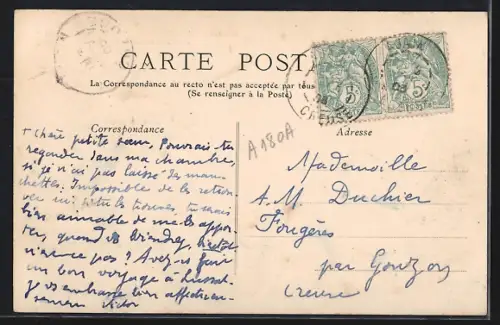 CARTE POSTALE
La Correspondance au recto n'est pas acceptée par tous
(Se renseigner à la Poste)
Correspondance
Adresse
A180A
CREUSE
5
5
Chère petite sœur, Pourrais-tu
regarder dans ma chambre,
si je n'ai pas laissé des man-
chettes. Impossible de les retrou-
ver ici, si tu les trouves, tu serais
bien aimable de me les appor-
ter, quand tu viendras,
n'est-ce pas ? Avez-vous fait
un bon voyage à Lussat.
Je vous embrasse bien affectueu-
sement Victor
Mademoiselle
A. M. Duchier
Fougères
par Gouzon
Creuse